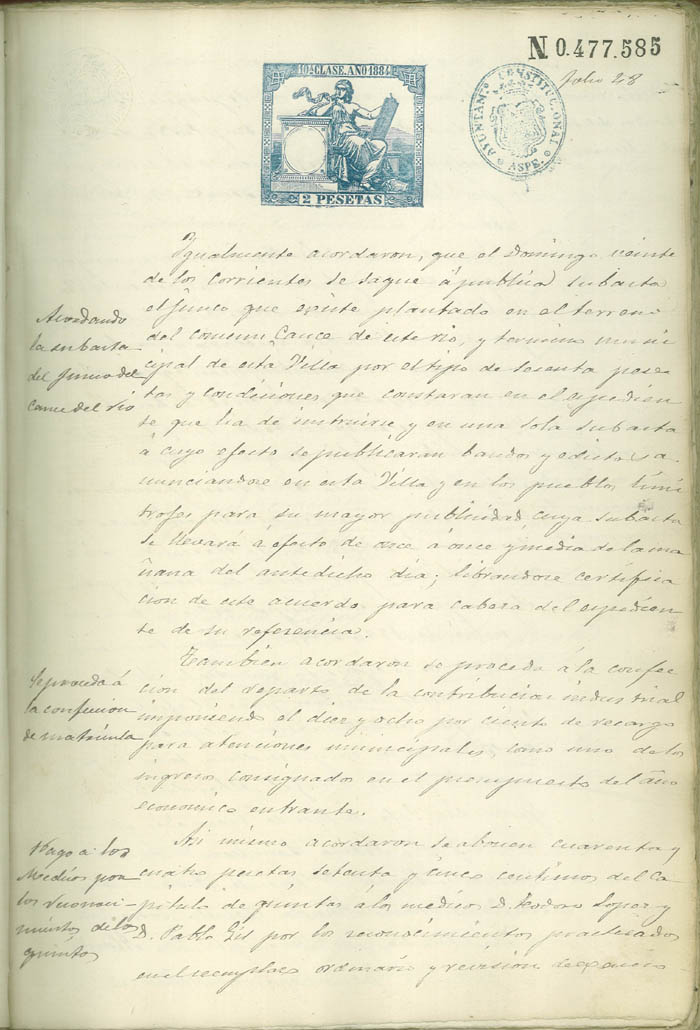 N 0.477.585
Folio 28
10ª CLASE. AÑO 1884
2 PESETAS
AYUNTAM.º CONSTITUCIONAL
ASPE.
Igualmente acordaron, que el Domingo veinte
de los corrientes se saque á publica subasta
el junco que existe plantado en el terreno
del comun, Cauce de este rio, y termino muni
cipal de esta Villa por el tipo de sesenta pese
tas y condiciones que constaran en el espedien
te que ha de instruirse y en una sola subasta
á cuyo efecto se publicaran bandos y edictos a
nunciandose en esta Villa y en los pueblos limi
trofes para su mayor publicidad cuya subasta
se llevará á efecto de once á once y media de la ma
ñana del antedicho dia; librandose certifica
cion de este acuerdo para cabeza del espedien
te de su referencia.
Acordando
la subasta
del junco del
Cauce del rio
Tambien acordaron se proceda á la confec
cion del reparto de la contribucion industrial
imponiendo el diez y ocho por ciento de recargo
para atenciones municipales, como uno de los
ingresos consignados en el presupuesto del año
economico entrante.
Se proceda á
la confeccion
de matricula
Asi mismo acordaron se abonen cuarenta y
cuatro pesetas setenta y cinco centimos del Ca
pitulo de quintas á los medicos D. Teodoro Lopez y
D. Pablo Gil por los reconocimientos practicados
en el reemplazo ordinario y revision de
Pago a los
Medicos por
los reconoci
mientos de los
quintos